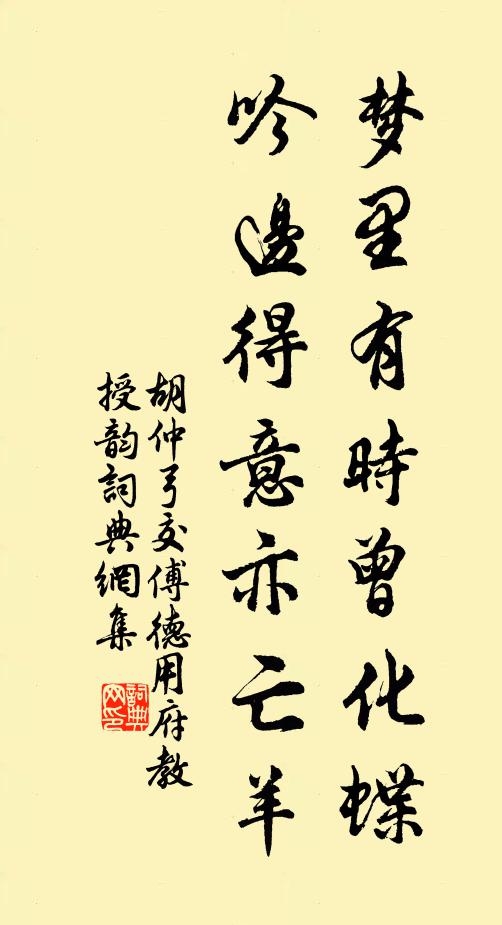 梦里有時曾化蝶
吟邊得意亦亡羊
胡仲弓交傅德用府教
授韵詞典網集
詞典网印